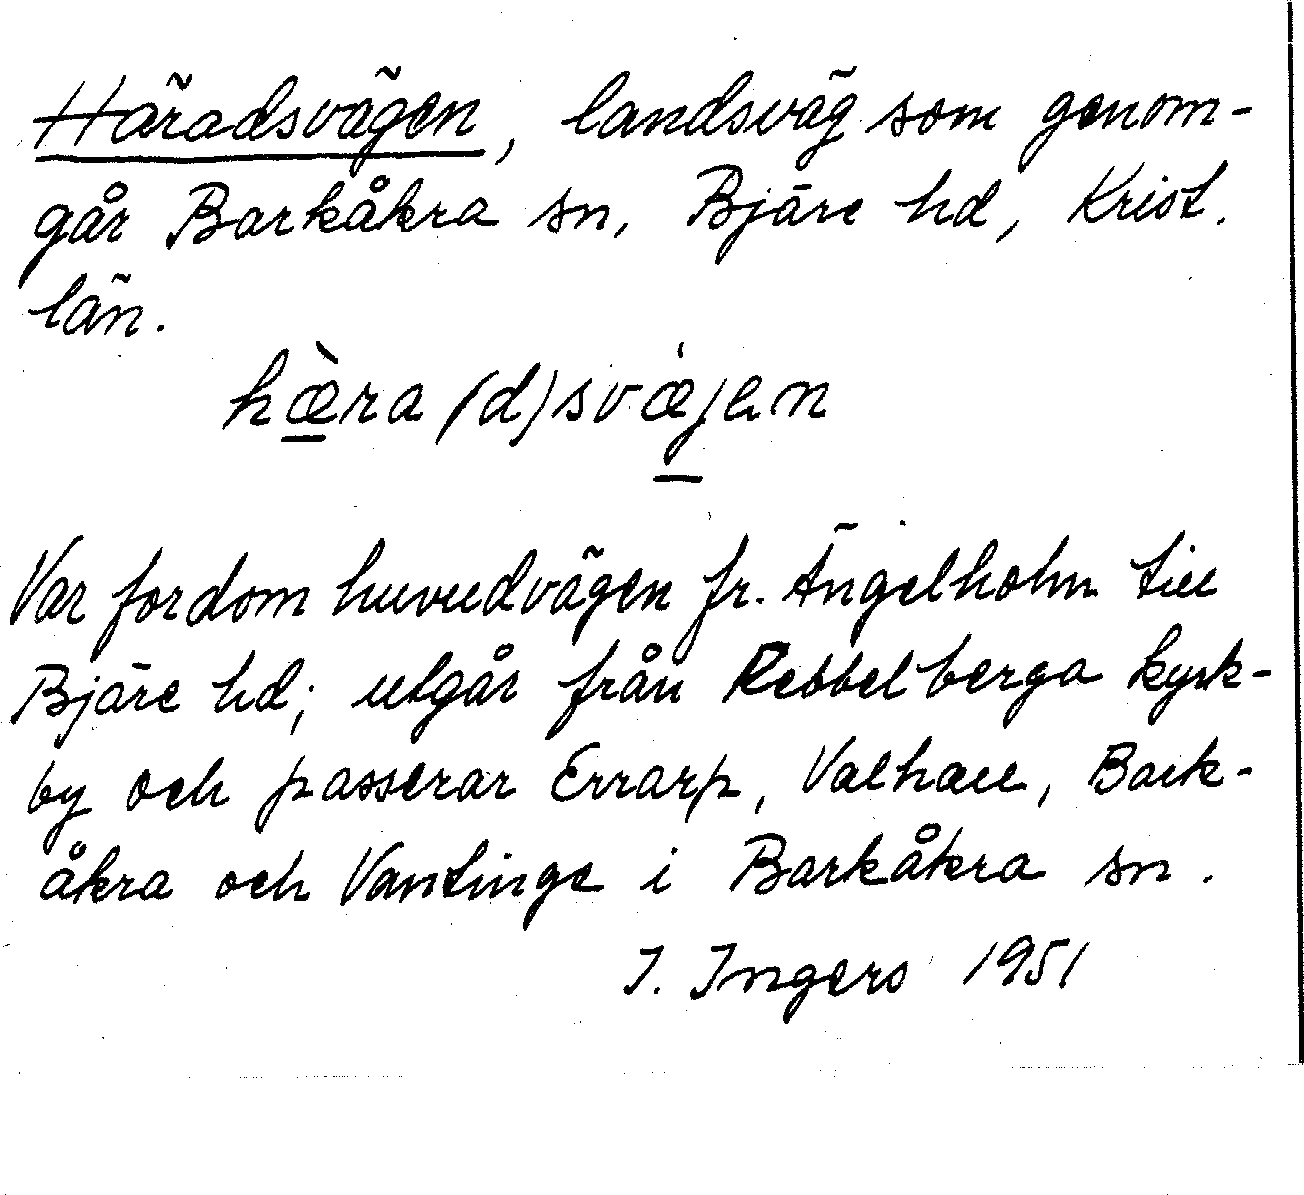 Häradsvägen, landsväg som genom-
går Barkåkra sn, Bjäre hd, Krist.
län.
hæ̀ra(d)svæ̍jen
Var fordom huvudvägen fr. Ängelholm till
Bjäre hd; utgår från Rebbelberga kyrk-
by och passerar Errarp, Valhall, Bark-
åkra och Vantinge i Barkåkra sn.
I. Ingers 1951